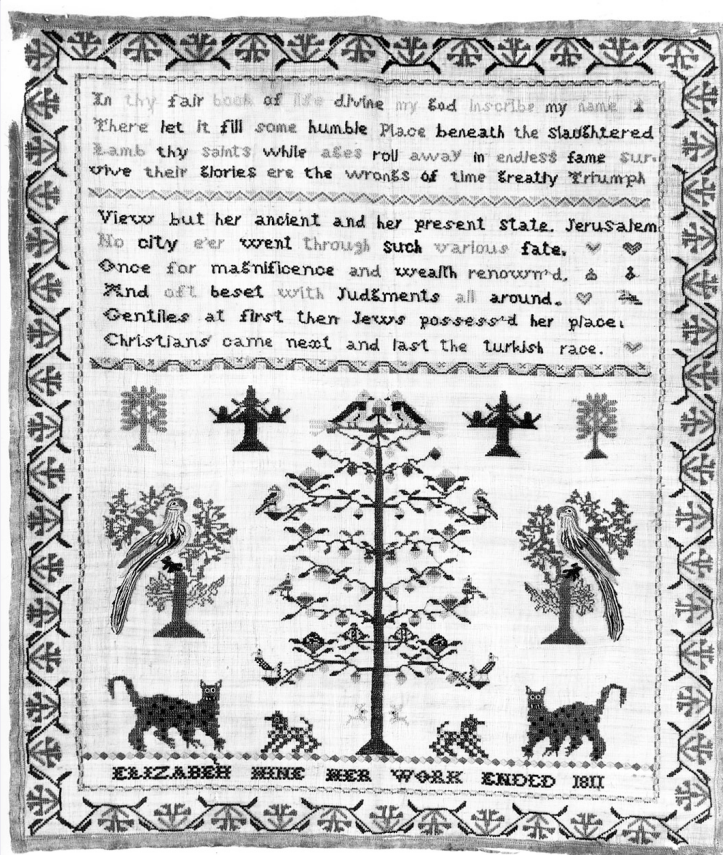 In thy fair book of life divine my god inscribe my name
There let it fill some humble Place beneath the slaughtered
Lamb thy saints while ages roll away in endless fame sur-
vive their glories ere the wrongs of time greatly Triumph
View but her ancient and her present state. Jerusalem
No city e'er went through such various fate.
Once for magnificence and wealth renown'd.
And oft beset with Judgments all around.
Gentiles at first then Jews possess'd her place.
Christians came next and last the turkish race.
ELIZABEH HINE HER WORK ENDED 1811